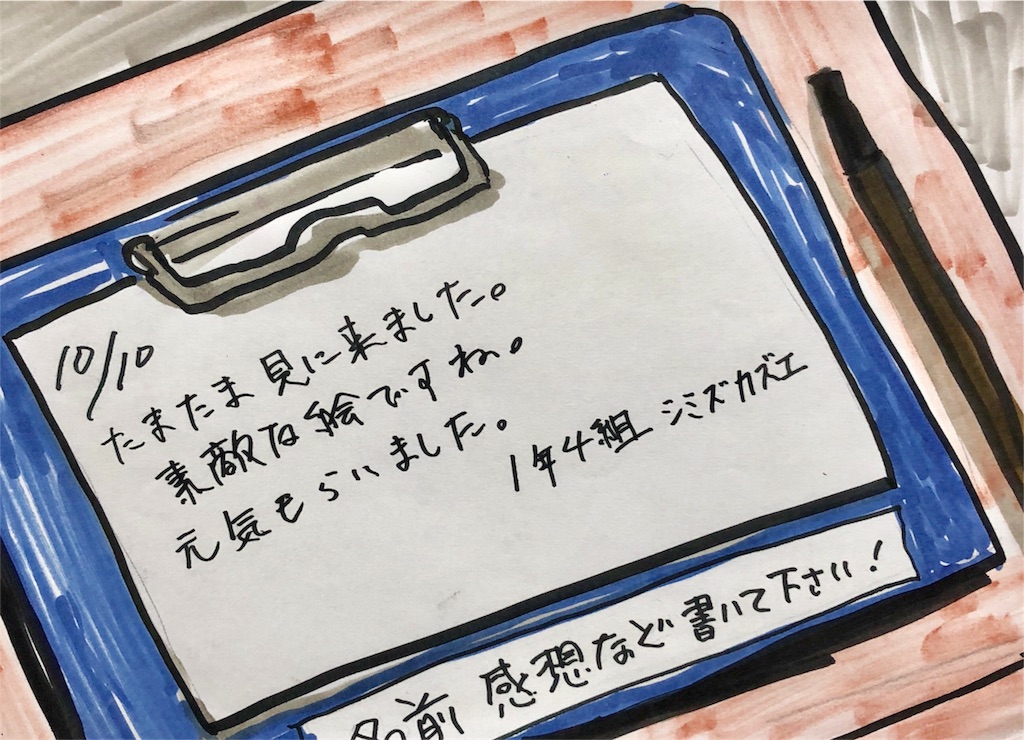 10/10
たまたま見に来ました。
素敵な絵ですね。
元気もらいました。
1年4組 シミズカズエ
名前 感想など書いて下さい!